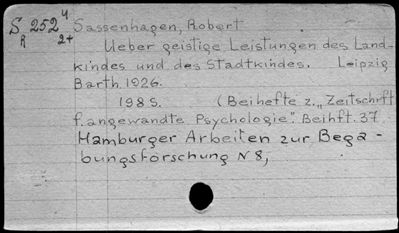 S 252 4 Sassenhagen, Robert
R 2+
Ueber geistige Leistungen des Land-
kindes und des Stadtkindes. Leipzig
Barth. 1926.
198 S. (Beihefte z. „Zeitschrft
f. angewandte Psychologie". Beihft. 37.
Hamburger Arbeiten zur Bega-
bungsforschung N 8,